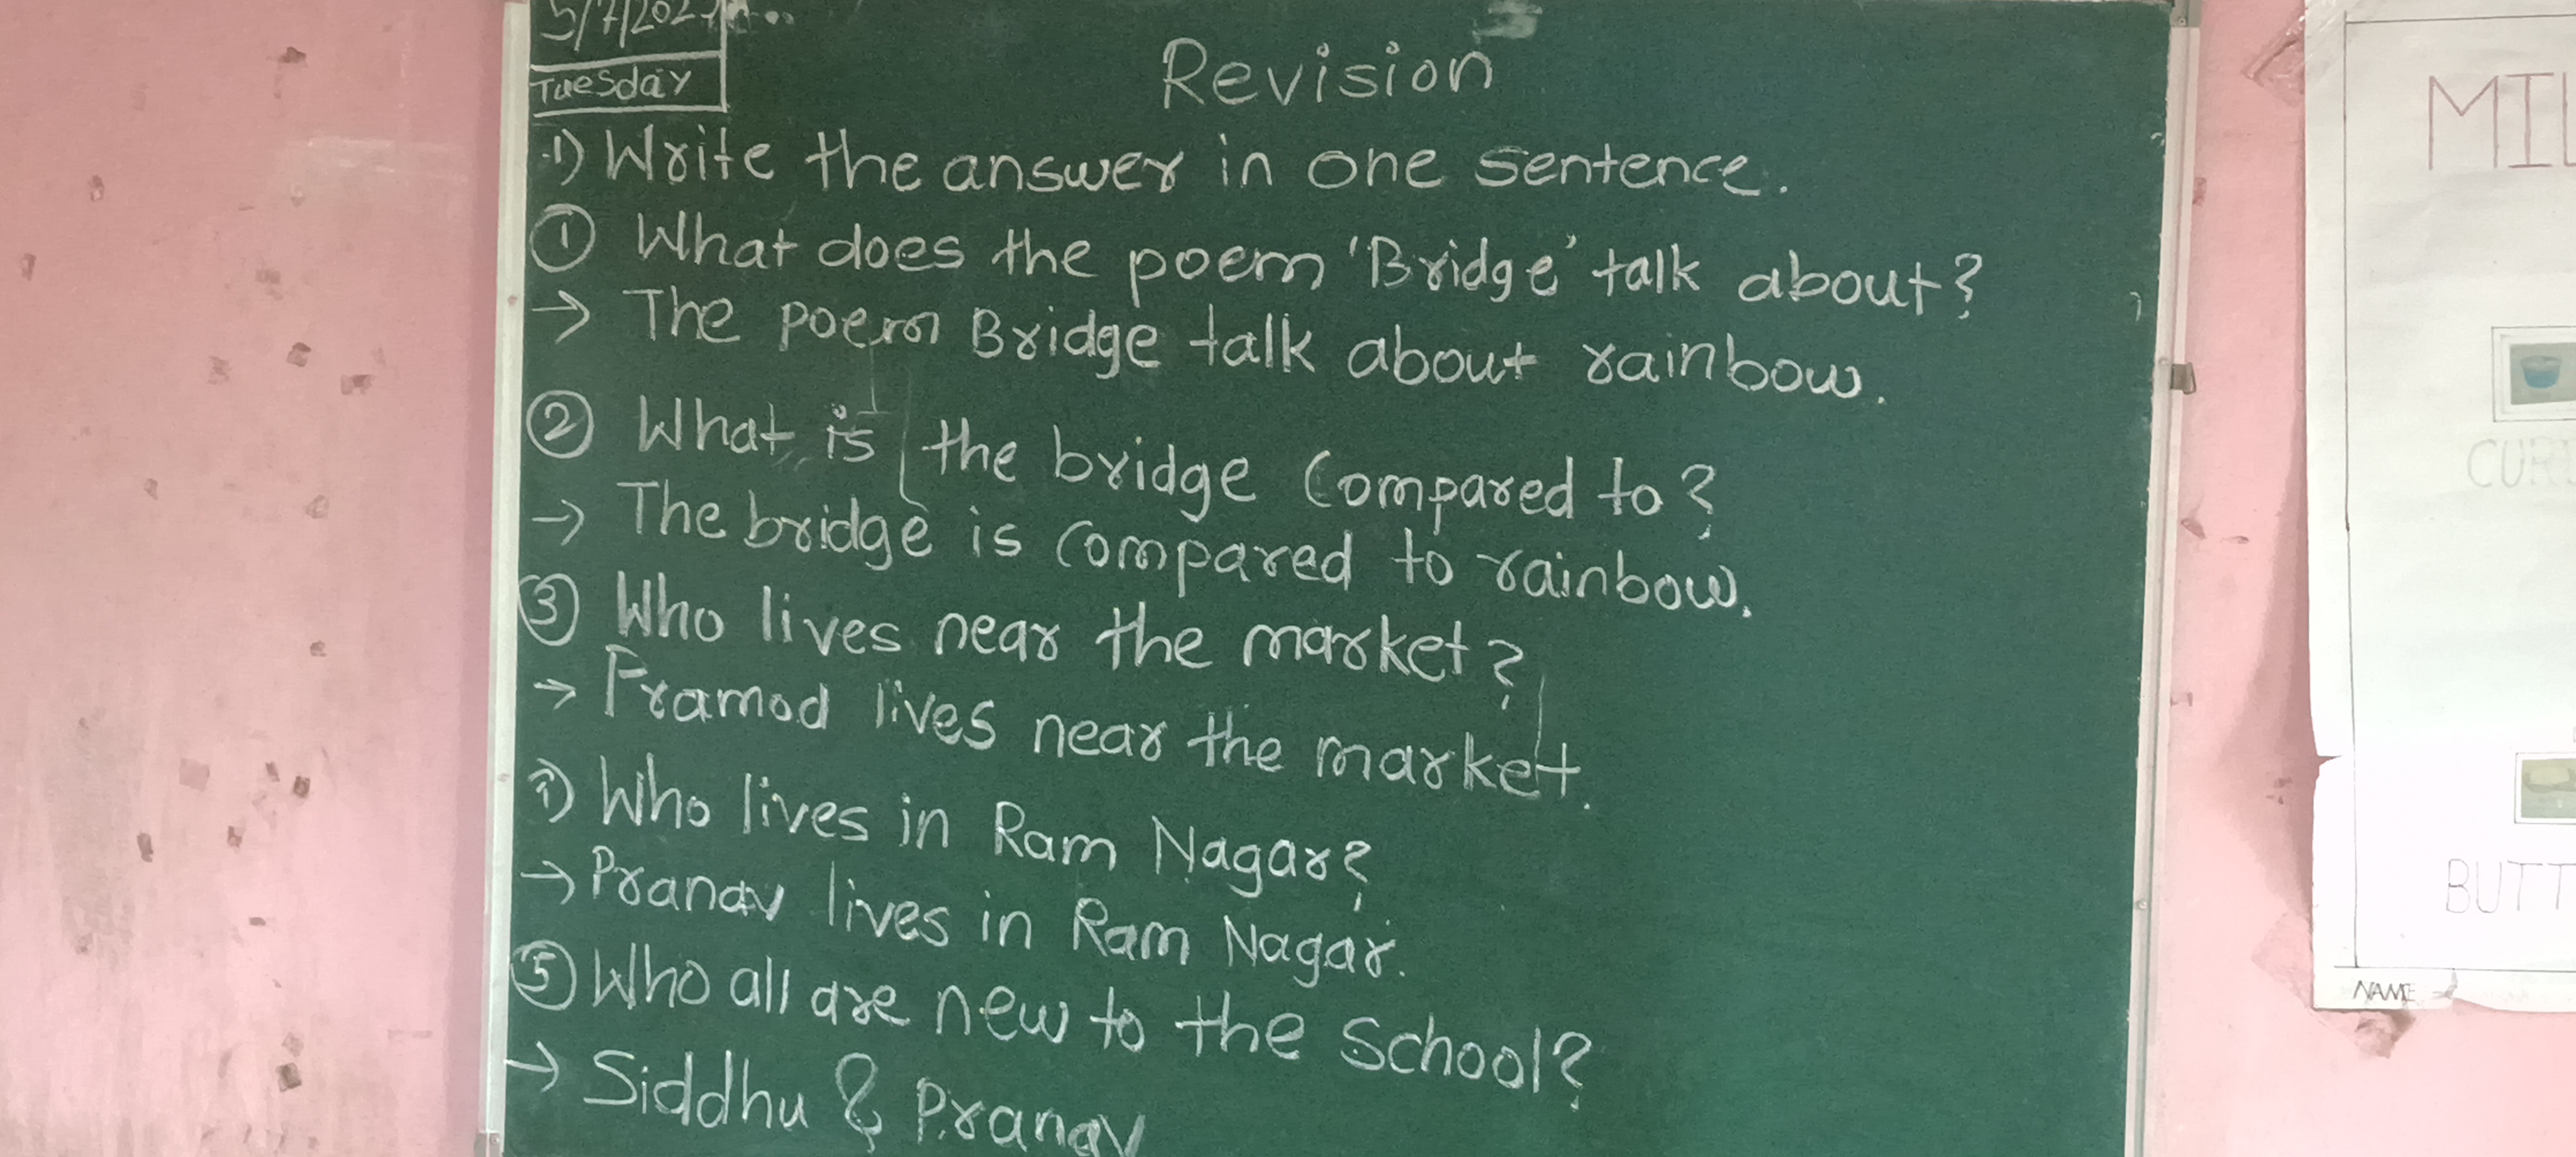 Tuesday
Revision
1) Write the answer in one sentence.
① What does the poem 'Bridge' talk about?
→ The poem Bridge talk about rainbow.
② What is the bridge Compared to?
→ The bridge is Compared to rainbow.
③ Who lives near the market?
→ Pramod lives near the market.
Who lives in Ram Nagar?
→ Pranav lives in Ram Nagar.
⑤ Who all are new to the School?
→ Siddhu & Pranav
MIL
CUR
BUTT
NAME